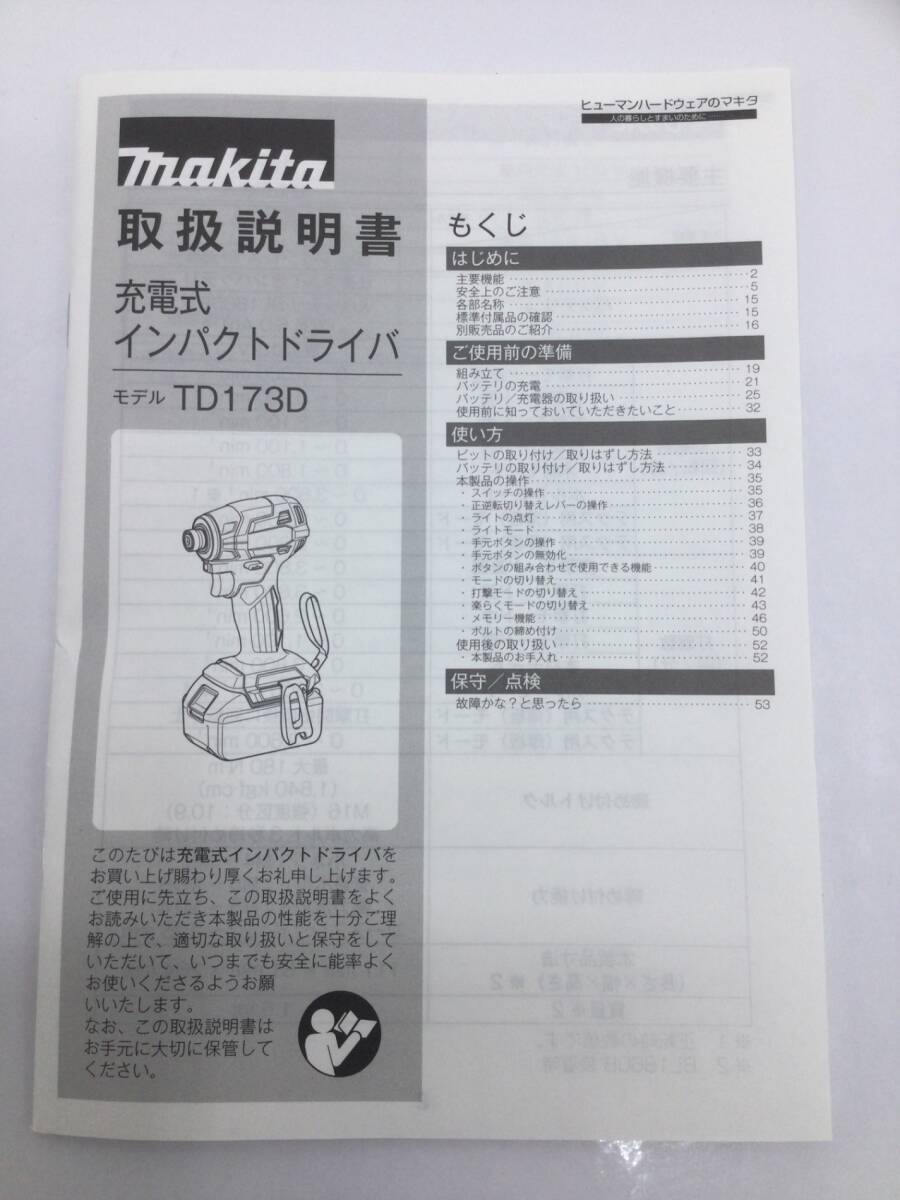 makita
取扱説明書
充電式
インパクトドライバ
モデル TD173D
このたびは充電式インパクトドライバを
お買い上げ賜わり厚くお礼申し上げます。
ご使用に先立ち、この取扱説明書をよく
お読みいただき本製品の性能を十分ご理
解の上で、適切な取り扱いと保守をして
いただいて、いつまでも安全に能率よく
お使いくださるようお願
いいたします。
なお、この取扱説明書は
お手元に大切に保管して
ください。
ヒューマンハードウェアのマキタ
人の暮らしとすまいのために……
もくじ
はじめに
主要機能……2
安全上のご注意……5
各部名称……15
標準付属品の確認……15
別販売品のご紹介……16
ご使用前の準備
組み立て……19
バッテリの充電……21
バッテリ／充電器の取り扱い……25
使用前に知っておいていただきたいこと……32
使い方
ビットの取り付け／取りはずし方法……33
バッテリの取り付け／取りはずし方法……34
本製品の操作……35
・スイッチの操作……35
・正逆転切り替えレバーの操作……36
・ライトの点灯……37
・ライトモード……38
・手元ボタンの操作……39
・手元ボタンの無効化……39
・ボタンの組み合わせで使用できる機能……40
・モードの切り替え……41
・打撃モードの切り替え……42
・楽らくモードの切り替え……43
・メモリー機能……46
・ボルトの締め付け……50
使用後の取り扱い……52
・本製品のお手入れ……52
保守／点検
故障かな？と思ったら……53